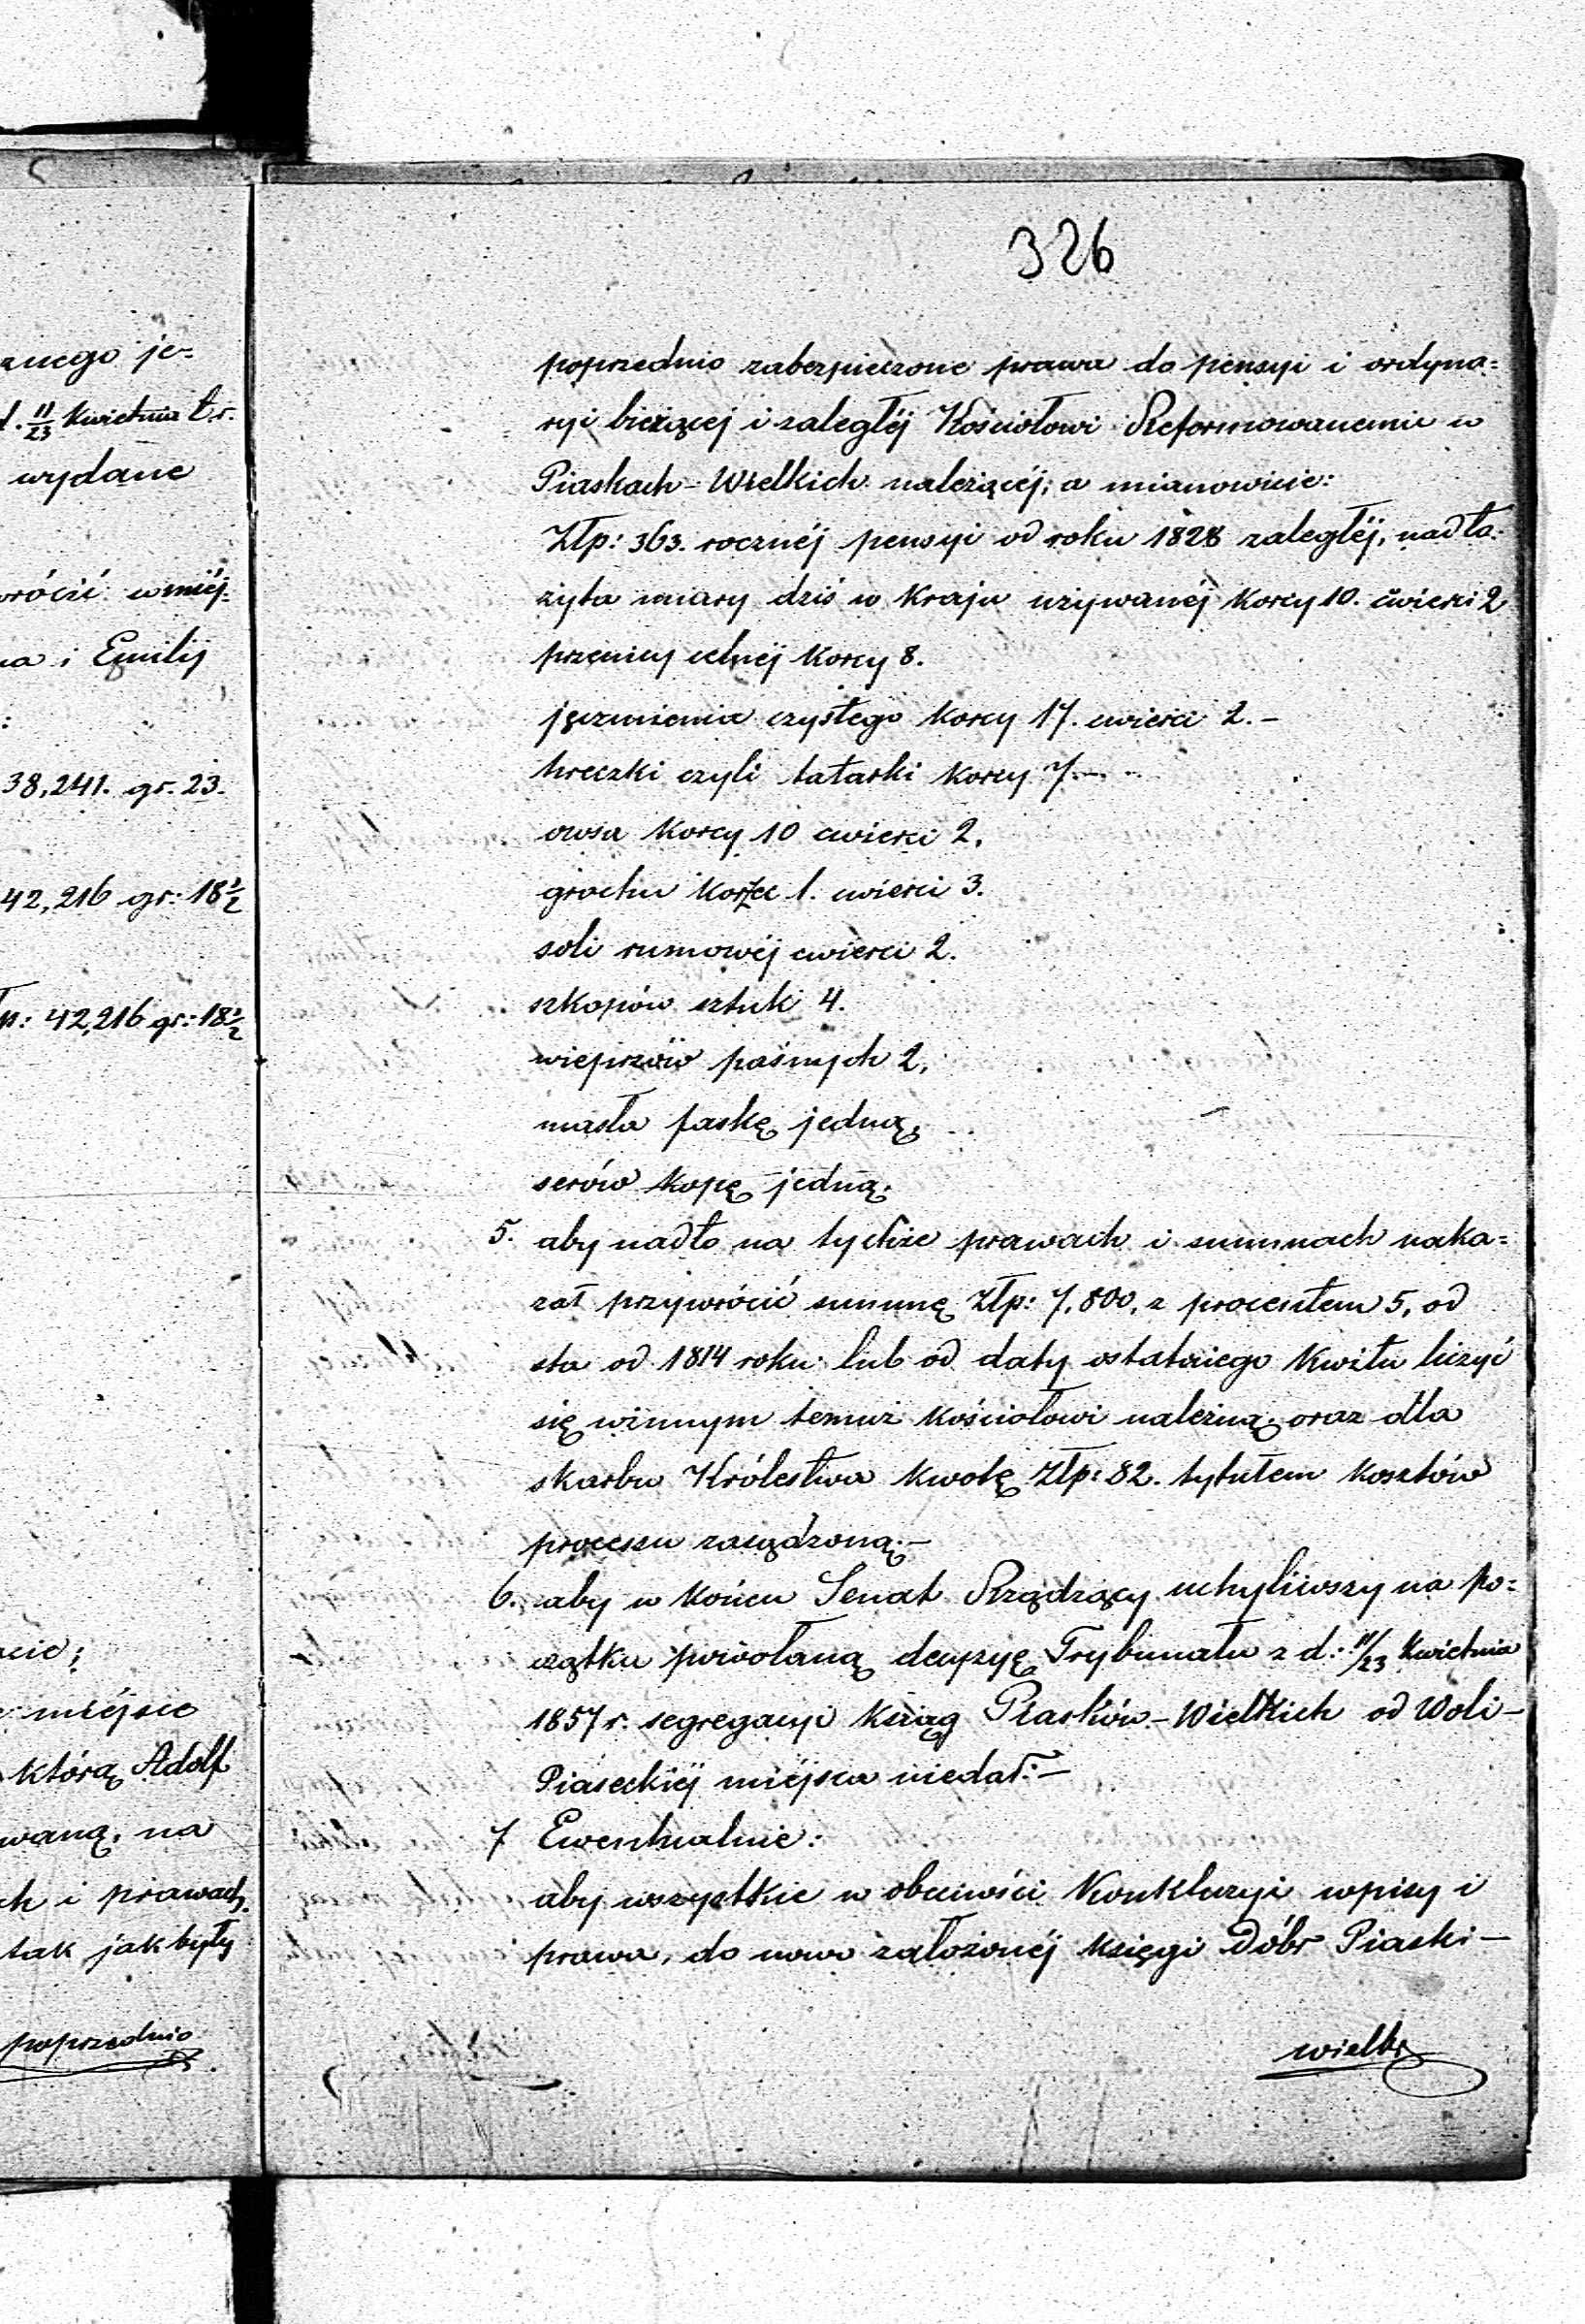 anego je=
d. 11/23 Kwietnia t. r.
wydane
wrócić w miéj-
na i Emilij
:
38,241. gr. 23.
42,216 gr: 18 1/2
łp: 42,216 gr: 18 1/2
cie;
miéjsce
którą Adolf
waną, na
ch i prawach,
tak jak były
poprzednio
326
poprzednio zabezpieczone prawa do pensyi i ordyna=
ryi bieżącej i zaległéj Kościołowi Reformowanemu w
Piaskach-Wielkich należącéj; a mianowicie:
Złp: 363. rocznéj pensyi od roku 1828 zaległéj, nadto:
żyta miary dziś w Kraju używanéj Korcy 10. ćwierci 2
przenicy celnéj Korcy 8.
jęczmienia czystego Korcy 17. cwierci 2.-
hreczki czyli tatarki Korcy 7.-
owsa Korcy 10 cwierci 2,
grochu Korzec 1. cwierci 3.
soli rumowéj cwierci 2.
szkopów sztuk 4.
wieprzów paśnych 2,
masła faskę jedną,
serów kopę jedną.
5. aby nadto na tychże prawach i summach naka=
zał przywrócić summę Złp: 7,800, z procentem 5, od
sta od 1814 roku lub od daty ostatniego Kwitu liczyć
się winnym temuż Kościołowi należną, oraz dla
skarbu Królestwa Kwotę Złp: 82. tytułem Kosztów
processu zasądzoną.-
6. aby w Końcu Senat Rządzący uchyliwszy na po=
czątku powołaną decyzyę Trybunału z d: 11/23 Kwietnia
1857 r. segregacyi Ksiąg Piasków-Wielkich od Woli-
Piaseckiéj miéjsca niedał.-
7 Ewentualnie:
aby wszystkie w obecności Konkluzyi wpisy i
prawa, do nowo założonéj Księgi Dóbr Piaski-
wielki